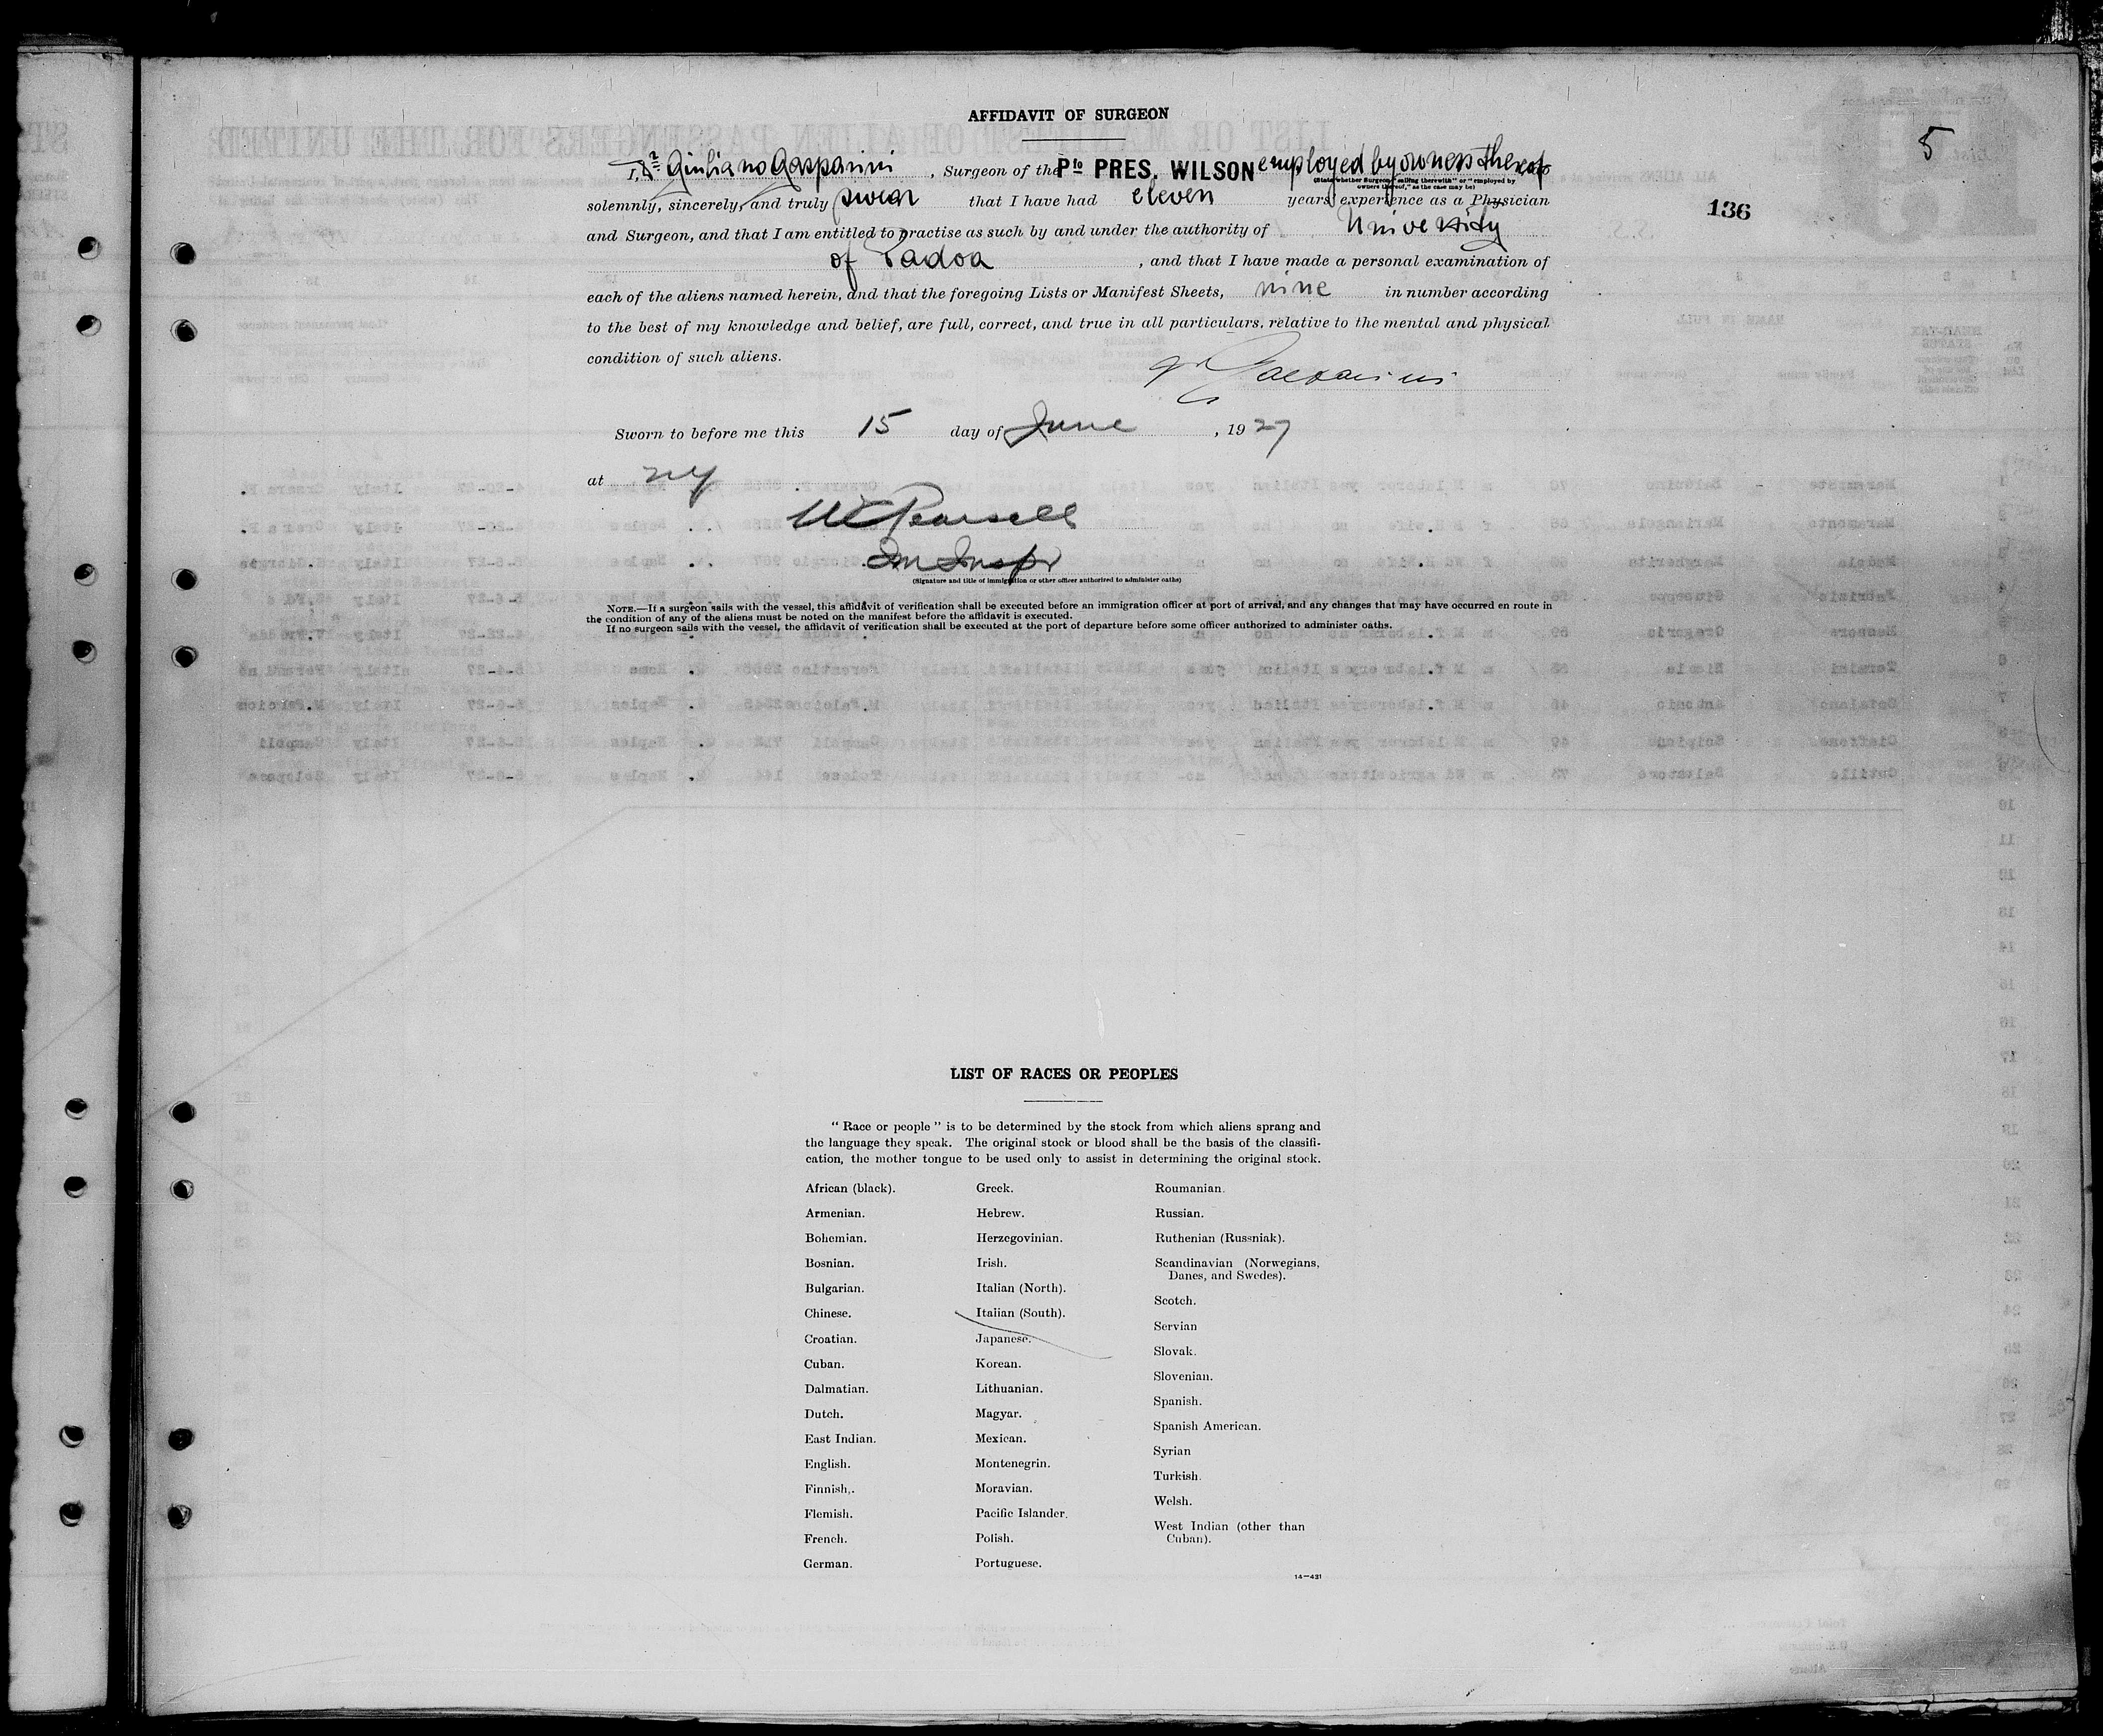 AFFIDAVIT OF SURGEON
5
I, Dr Giuliano Gasparini, Surgeon of the Pfo PRES. WILSON employed by owners thereof
(State whether Surgeon "sailing therewith" or "employed by
owners thereof," as the case may be)
136
solemnly, sincerely, and truly swear that I have had eleven years experience as a Physician
and Surgeon, and that I am entitled to practise as such by and under the authority of University
of Padoa, and that I have made a personal examination of
each of the aliens named herein, and that the foregoing Lists or Manifest Sheets, nine in number according
to the best of my knowledge and belief, are full, correct, and true in all particulars, relative to the mental and physical
condition of such aliens.
Gasparini
Sworn to before me this 15 day of June, 1927
at NY
Pearsall
Im Inspr
(Signature and title of immigration or other officer authorized to administer oaths)
NOTE.—If a surgeon sails with the vessel, this affidavit of verification shall be executed before an immigration officer at port of arrival, and any changes that may have occurred en route in
the condition of any of the aliens must be noted on the manifest before the affidavit is executed.
If no surgeon sails with the vessel, the affidavit of verification shall be executed at the port of departure before some officer authorized to administer oaths.
LIST OF RACES OR PEOPLES
"Race or people" is to be determined by the stock from which aliens sprang and
the language they speak. The original stock or blood shall be the basis of the classifi-
cation, the mother tongue to be used only to assist in determining the original stock.
African (black).
Armenian.
Bohemian.
Bosnian.
Bulgarian.
Chinese.
Croatian.
Cuban.
Dalmatian.
Dutch.
East Indian.
English.
Finnish.
Flemish.
French.
German.
Greek.
Hebrew.
Herzegovinian.
Irish.
Italian (North).
Italian (South).
Japanese.
Korean.
Lithuanian.
Magyar.
Mexican.
Montenegrin.
Moravian.
Pacific Islander.
Polish.
Portuguese.
Roumanian.
Russian.
Ruthenian (Russniak).
Scandinavian (Norwegians,
Danes, and Swedes).
Scotch.
Servian
Slovak.
Slovenian.
Spanish.
Spanish American.
Syrian
Turkish.
Welsh.
West Indian (other than
Cuban).
14—431